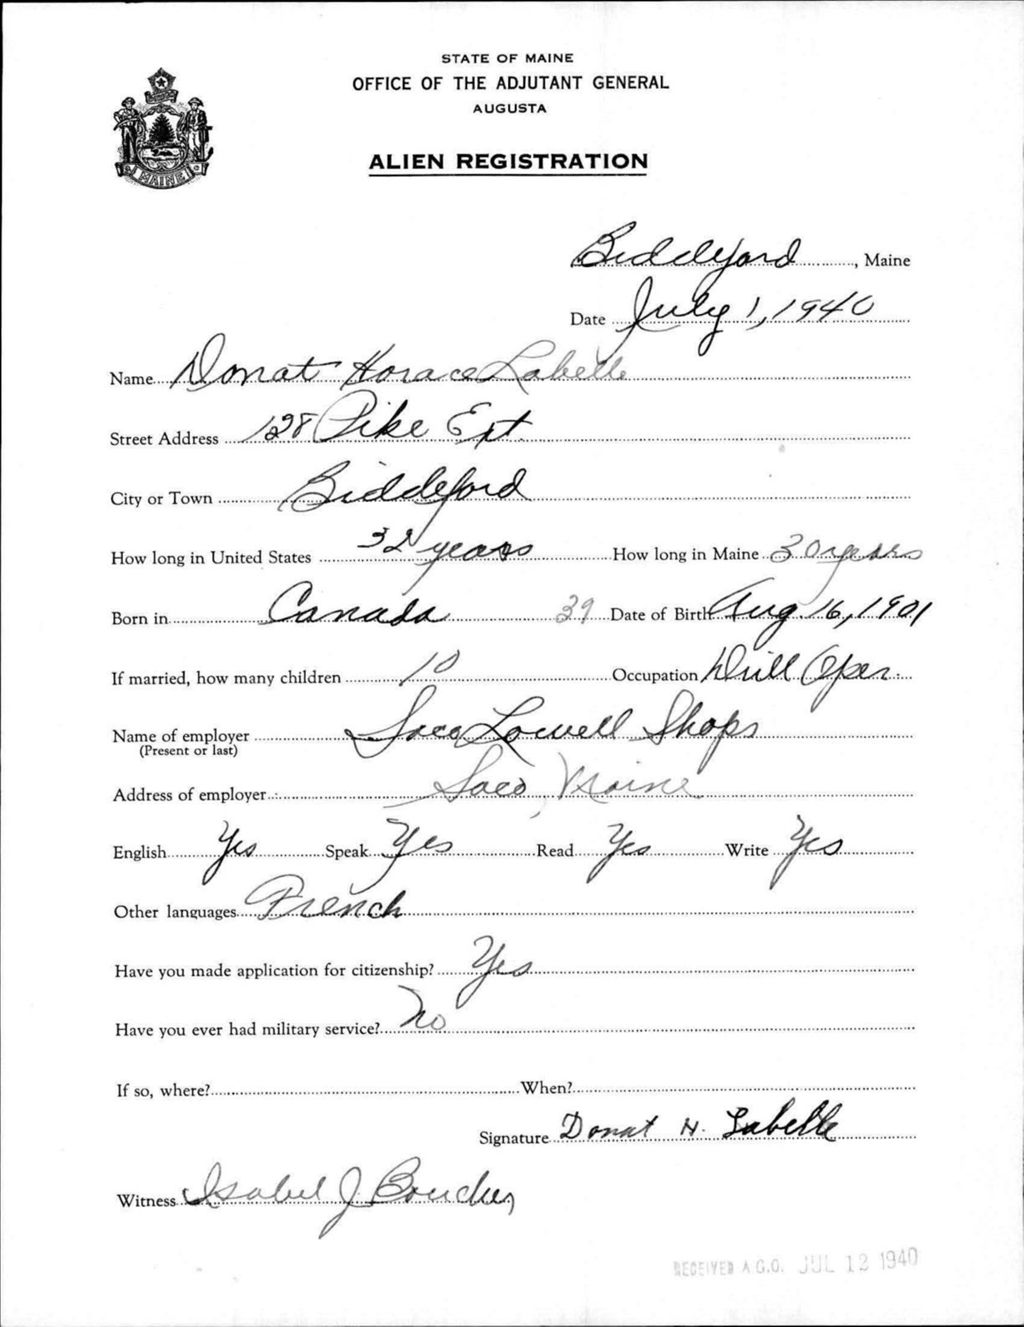 STATE OF MAINE
OFFICE OF THE ADJUTANT GENERAL
AUGUSTA
ALIEN REGISTRATION
MAINE
Biddeford, Maine
Date July 1, 1940
Name Donat Horace Labelle
Street Address 128 Pike Ext.
City or Town Biddeford
How long in United States 32 years How long in Maine 30 years
Born in Canada 39 Date of Birth Aug 16, 1901
If married, how many children 10 Occupation Drill Oper.
Name of employer Saco Lowell Shops
(Present or last)
Address of employer Saco, Maine
English Yes Speak Yes Read Yes Write Yes
Other languages French
Have you made application for citizenship? Yes
Have you ever had military service? No
If so, where? When?
Signature Donat H. Labelle
Witness Isabel J Boucher
RECEIVED A.G.O. JUL 12 1940